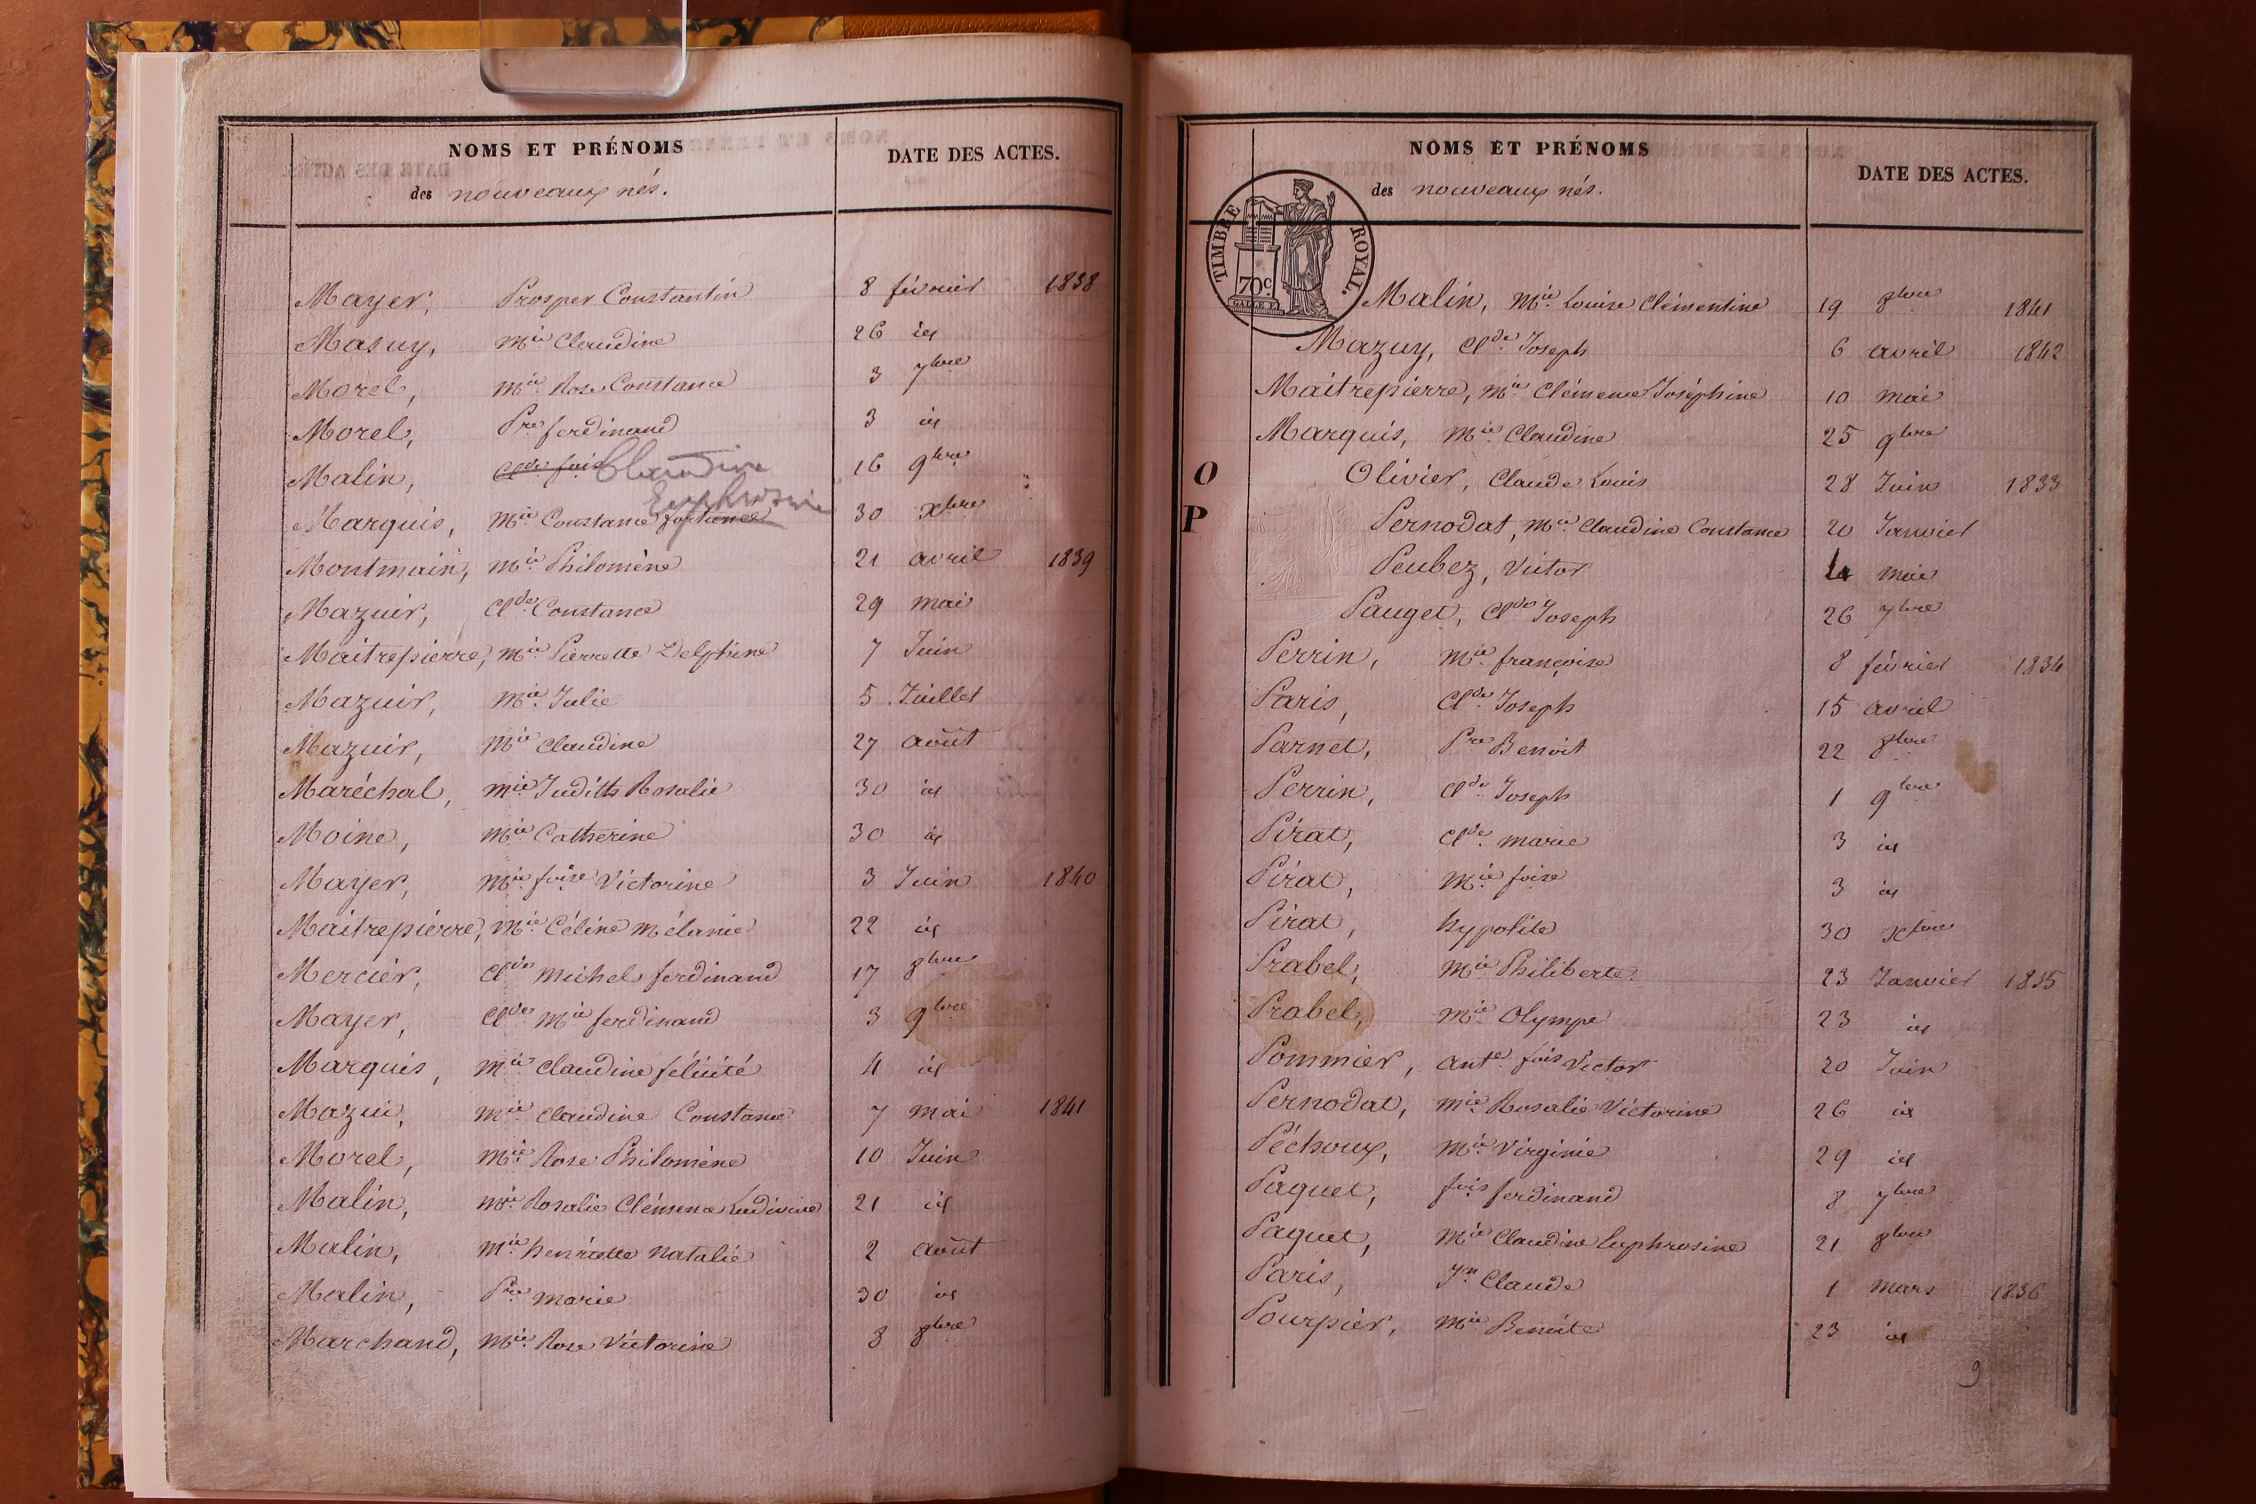 NOMS ET PRÉNOMS
des nouveaux nés.
DATE DES ACTES.
Mayer, Prosper Constantin 8 février 1838
Masuy, Mie Claudine 26 id
Morel, Mie Rose Constance 3 7bre
Morel, Pre ferdinand 3 id
Malin, Clde fois Claudine Euphrosine 16 9bre
Marquis, Mie Constance 30 Xbre
Montmain, Mie Philomène 21 avril 1839
Mazuir, Clde Constance 29 mai
Maitrepierre, Mie Pierrette Delphine 7 Juin
Mazuir, Mie Julie 5 Juillet
Mazuir, Mie Claudine 27 août
Maréchal, Mie Judith Rosalie 30 id
Moine, Mie Catherine 30 id
Mayer, Mie foise Victorine 3 Juin 1840
Maitrepierre, Mie Céline Mélanie 22 id
Mercier, Clde Michel ferdinand 17 8bre
Mayer, Clde Mie ferdinand 3 9bre
Marquis, Mie Claudine félicité 4 id
Mazui, Mie Claudine Constance 7 mai 1841
Morel, Mie Rose Philomène 10 Juin
Malin, Mie Rosalie Clémence Ludivine 21 id
Malin, Mie henriette Natalie 2 août
Malin, Pre marie 30 id
Marchand, Mie Rose Victorine 8 8bre
NOMS ET PRÉNOMS
des nouveaux nés.
DATE DES ACTES.
TIMBRE ROYAL.
70c.
Malin, Mie Louise Clémentine 19 8bre 1841
Mazuy, Clde Joseph 6 avril 1842
Maitrepierre, Mie Clémence Joséphine 10 mai
Marquis, Mie Claudine 25 9bre
O Olivier, Claude Louis 28 Juin 1833
P Pernodat, Mie Claudine Constance 20 Janvier
Peubez, Victor 4 mai
Pauget, Clde Joseph 26 7bre
Perrin, Mie françoise 8 février 1834
Paris, Clde Joseph 15 avril
Parnet, Pre Benoit 22 8bre
Perrin, Clde Joseph 1 9bre
Pirat, Clde marie 3 id
Pirat, Mie foise 3 id
Pirat, hypolite 30 Xbre
Prabel, Mie Philiberte 23 Janvier 1835
Prabel, Mie Olympe 23 id
Pommier, Ante fois Victor 20 Juin
Pernodat, Mie Rosalie Victorine 26 id
Péchoux, Mie Virginie 29 id
Paquet, fois ferdinand 8 7bre
Paquet, Mie Claudine Euphrosine 21 8bre
Paris, Jn Claude 1 mars 1836
Pourpier, Mie Benoite 23 id
9